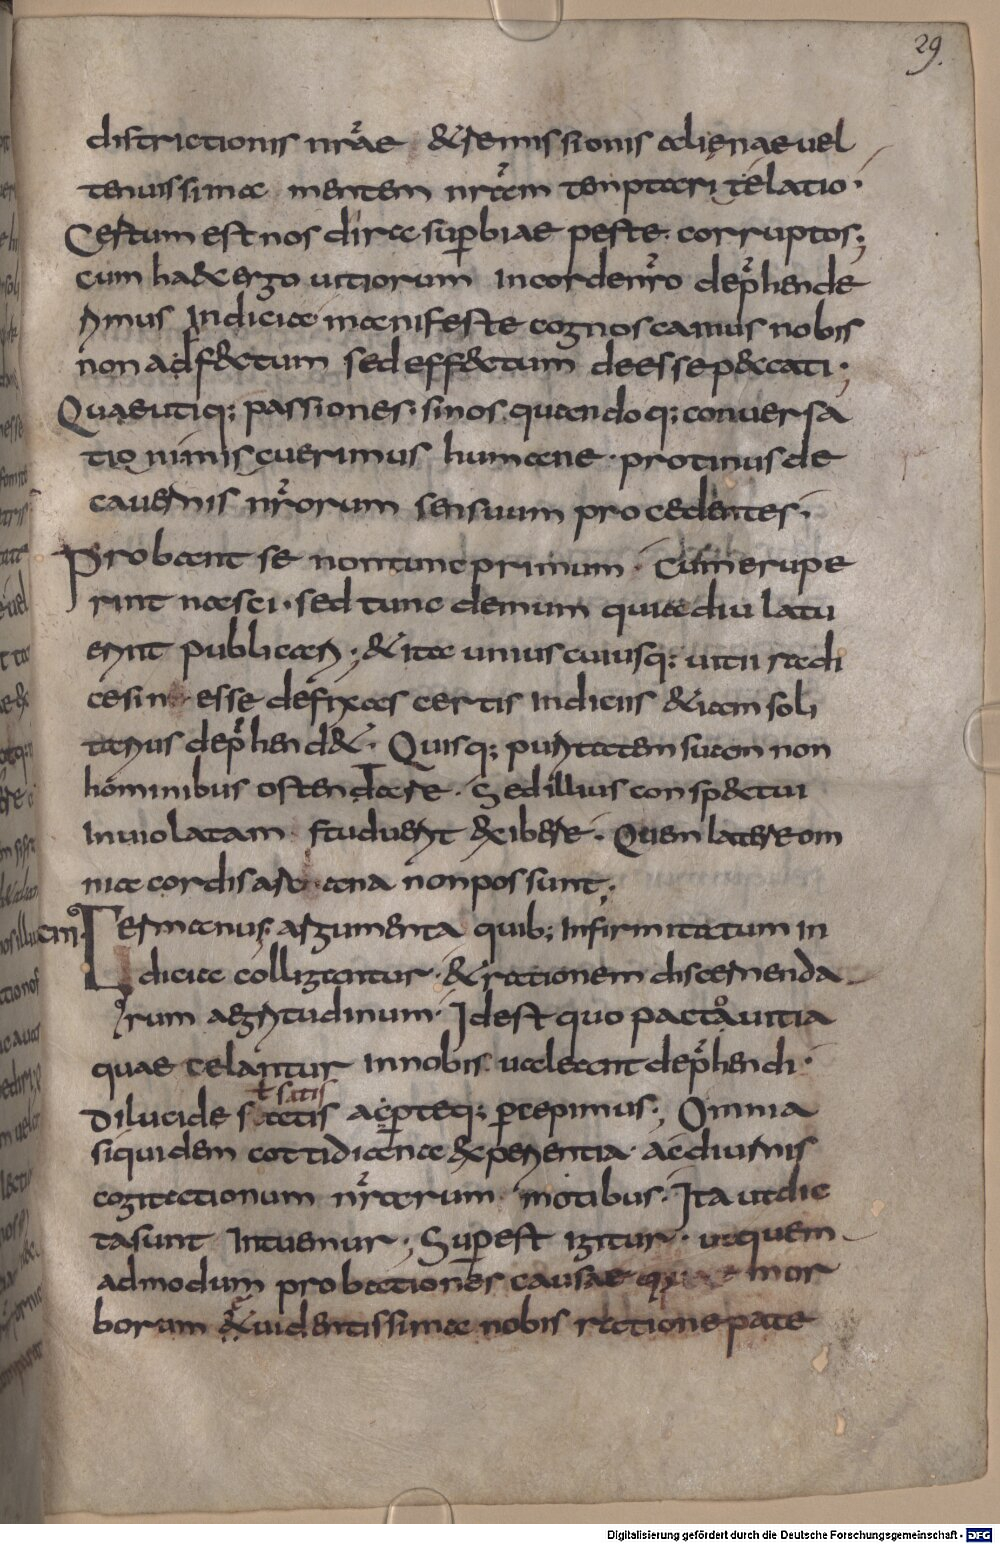 29.
districtionis nrae & remissionis alienae vel
tenuissima mentem nram temptari relatio·
Certum est nos dirae superbiae peste· corruptos;
cum haec ergo vitiorum in corde nro deprehende
rimus Indicia manifeste cognoscamus nobis
non adfectum sed effectum deesse peccati·;
Quae utiq; passiones· si nos quandoq; conversa
tioni miscuerimus humanae· protinus de
cavernis nrorum sensuum procedentes·
Probant se non tunc primum· Cum erupe
rint nasci· sed tunc demum quia diu latu
erint publicari; & ita uniuscuiusq; vitii radi
ces in esse defixas certis indiciis & iam soli
tarius deprehend&· Quisq; puritatem suam non
hominibus ostendere· Sed illius conspectui
inviolatam studuerit exibere· Quem latere om
nia cordis arcana non possunt;
Germanus; argumenta quib; Infirmitatum in
cxii
dicia colligantur· & rationem discernenda
rum aegritudinum· Id est quo pacto vitia
quae celantur in nobis valeant deprehendi·
Dilucide satis aperteq; percepimus; Omnia
ł satis
siquidem cottidiana experientia· ac diurnis
cogitationum nrarum motibus· Ita ut dic
ta sunt Intuemur; Superest igitur· ut quem
admodum probationes causae quae mor
borum evidentissima nobis ratione pate
Digitalisierung gefördert durch die Deutsche Forschungsgemeinschaft - DFG